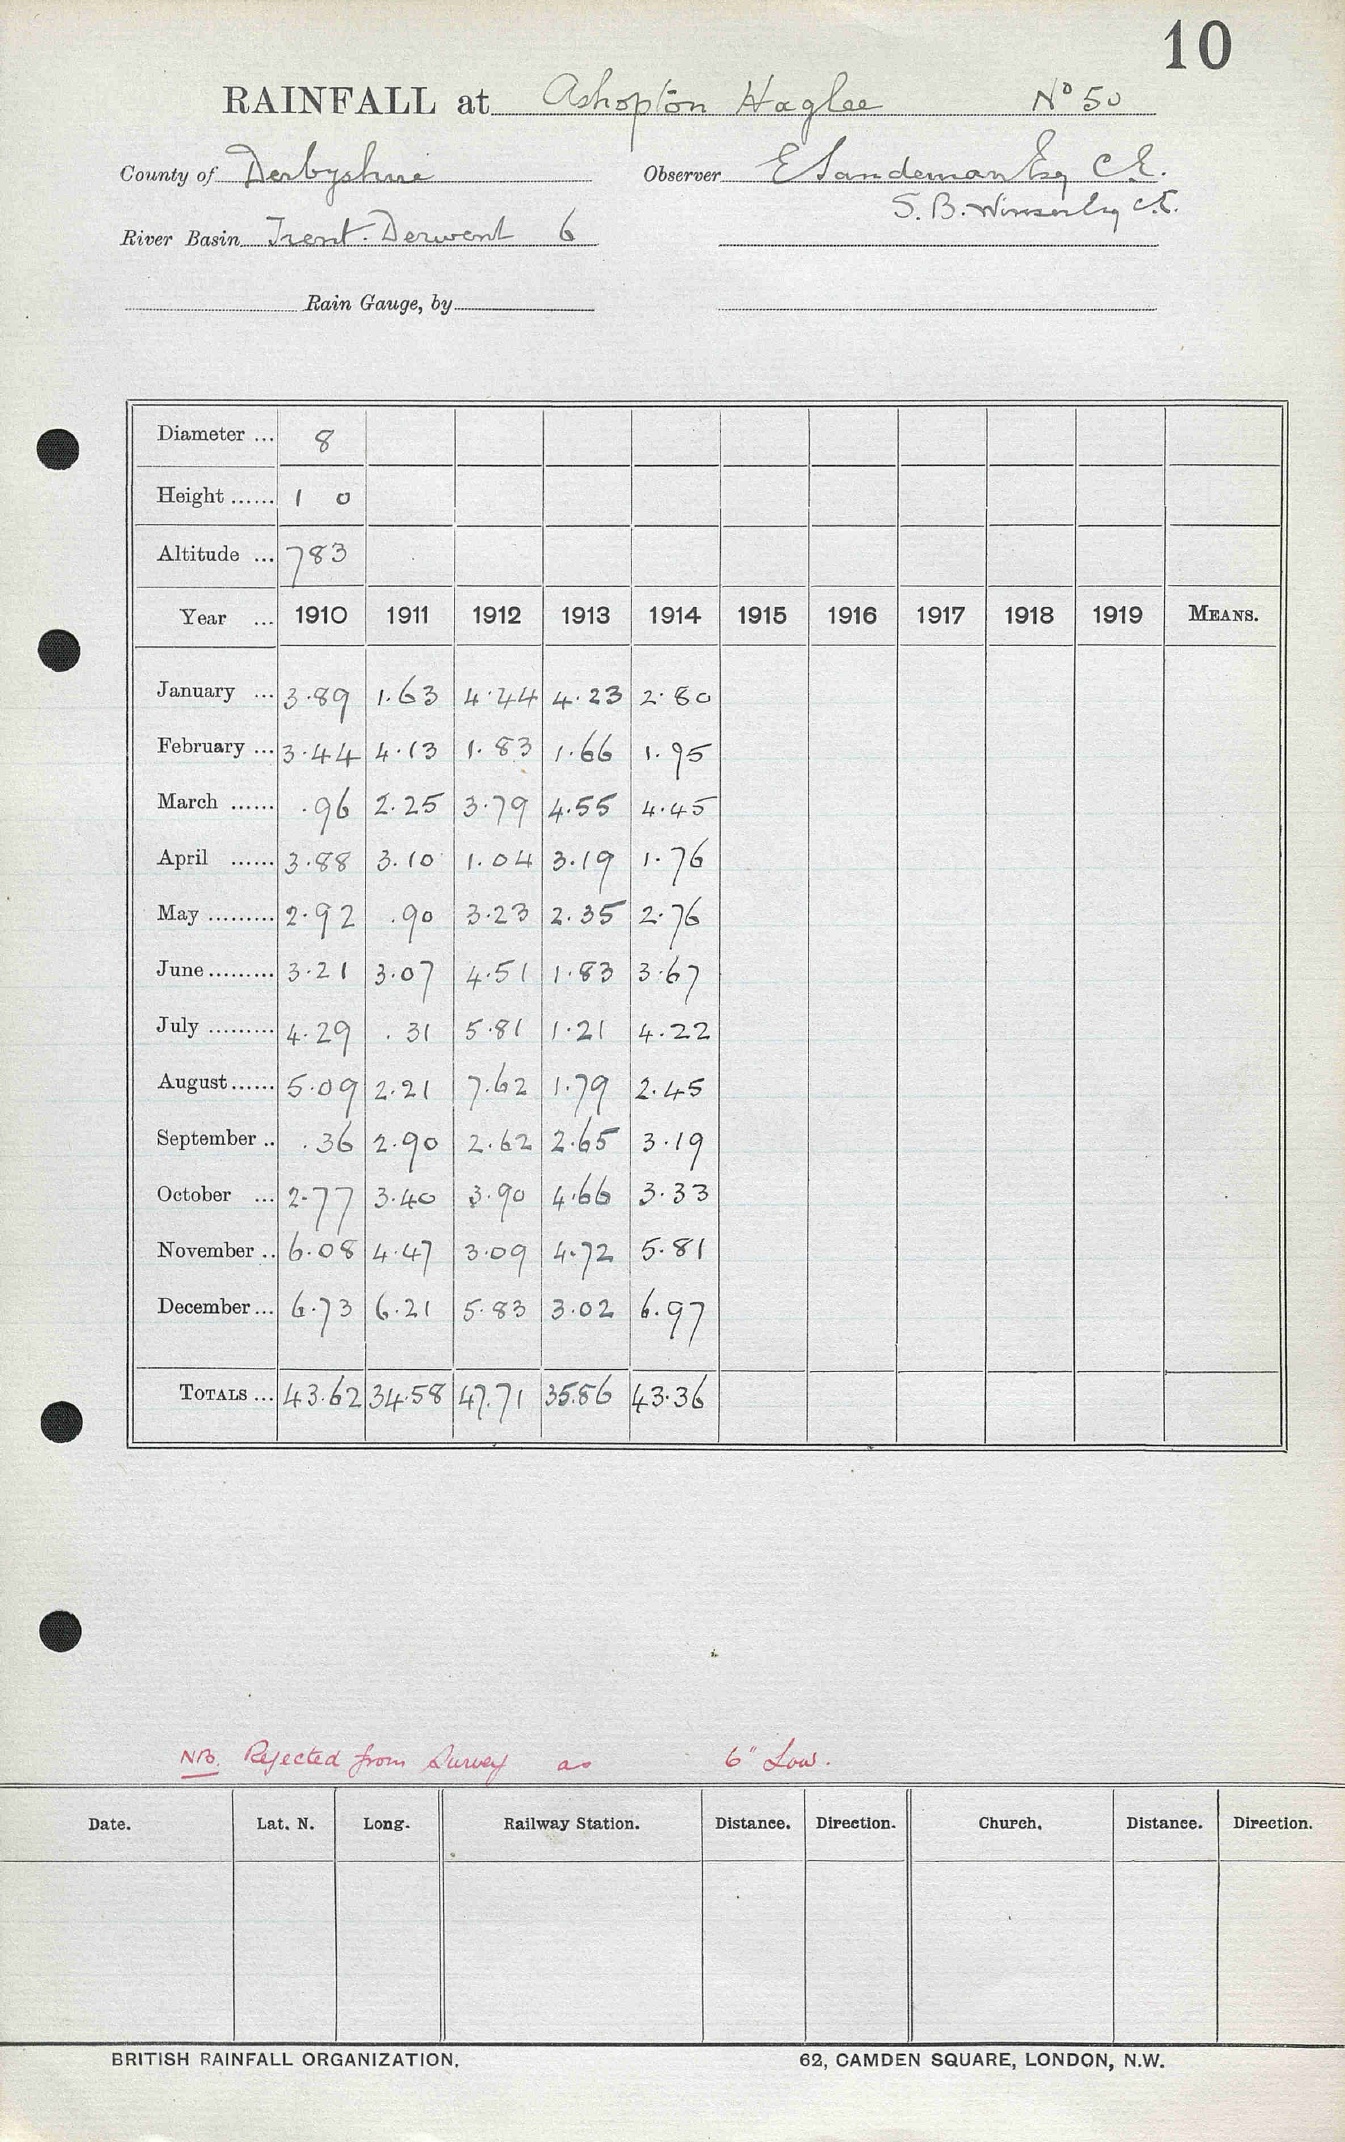 10
RAINFALL at Ashopton Haglee No 50
County of Derbyshire Observer E Sandeman Esq C.E.
S. B. Winserby C.E.
River Basin Trent. Derwent 6
Rain Gauge, by
Diameter ... 8
Height ...... 1 0
Altitude ... 783
Year ... 1910 1911 1912 1913 1914 1915 1916 1917 1918 1919 MEANS.
January ... 3.89 1.63 4.44 4.23 2.80
February ... 3.44 4.13 1.83 1.66 1.95
March ...... .96 2.25 3.79 4.55 4.45
April ...... 3.88 3.10 1.04 3.19 1.76
May ......... 2.92 .90 3.23 2.35 2.76
June ......... 3.21 3.07 4.51 1.83 3.67
July ......... 4.29 .31 5.81 1.21 4.22
August ...... 5.09 2.21 7.62 1.79 2.45
September .. .36 2.90 2.62 2.65 3.19
October ... 2.77 3.40 3.90 4.66 3.33
November .. 6.08 4.47 3.09 4.72 5.81
December ... 6.73 6.21 5.83 3.02 6.97
TOTALS ... 43.62 34.58 47.71 35.86 43.36
NB. Rejected from Survey as 6" Low.
Date. Lat. N. Long. Railway Station. Distance. Direction. Church. Distance. Direction.
BRITISH RAINFALL ORGANIZATION. 62, CAMDEN SQUARE, LONDON, N.W.